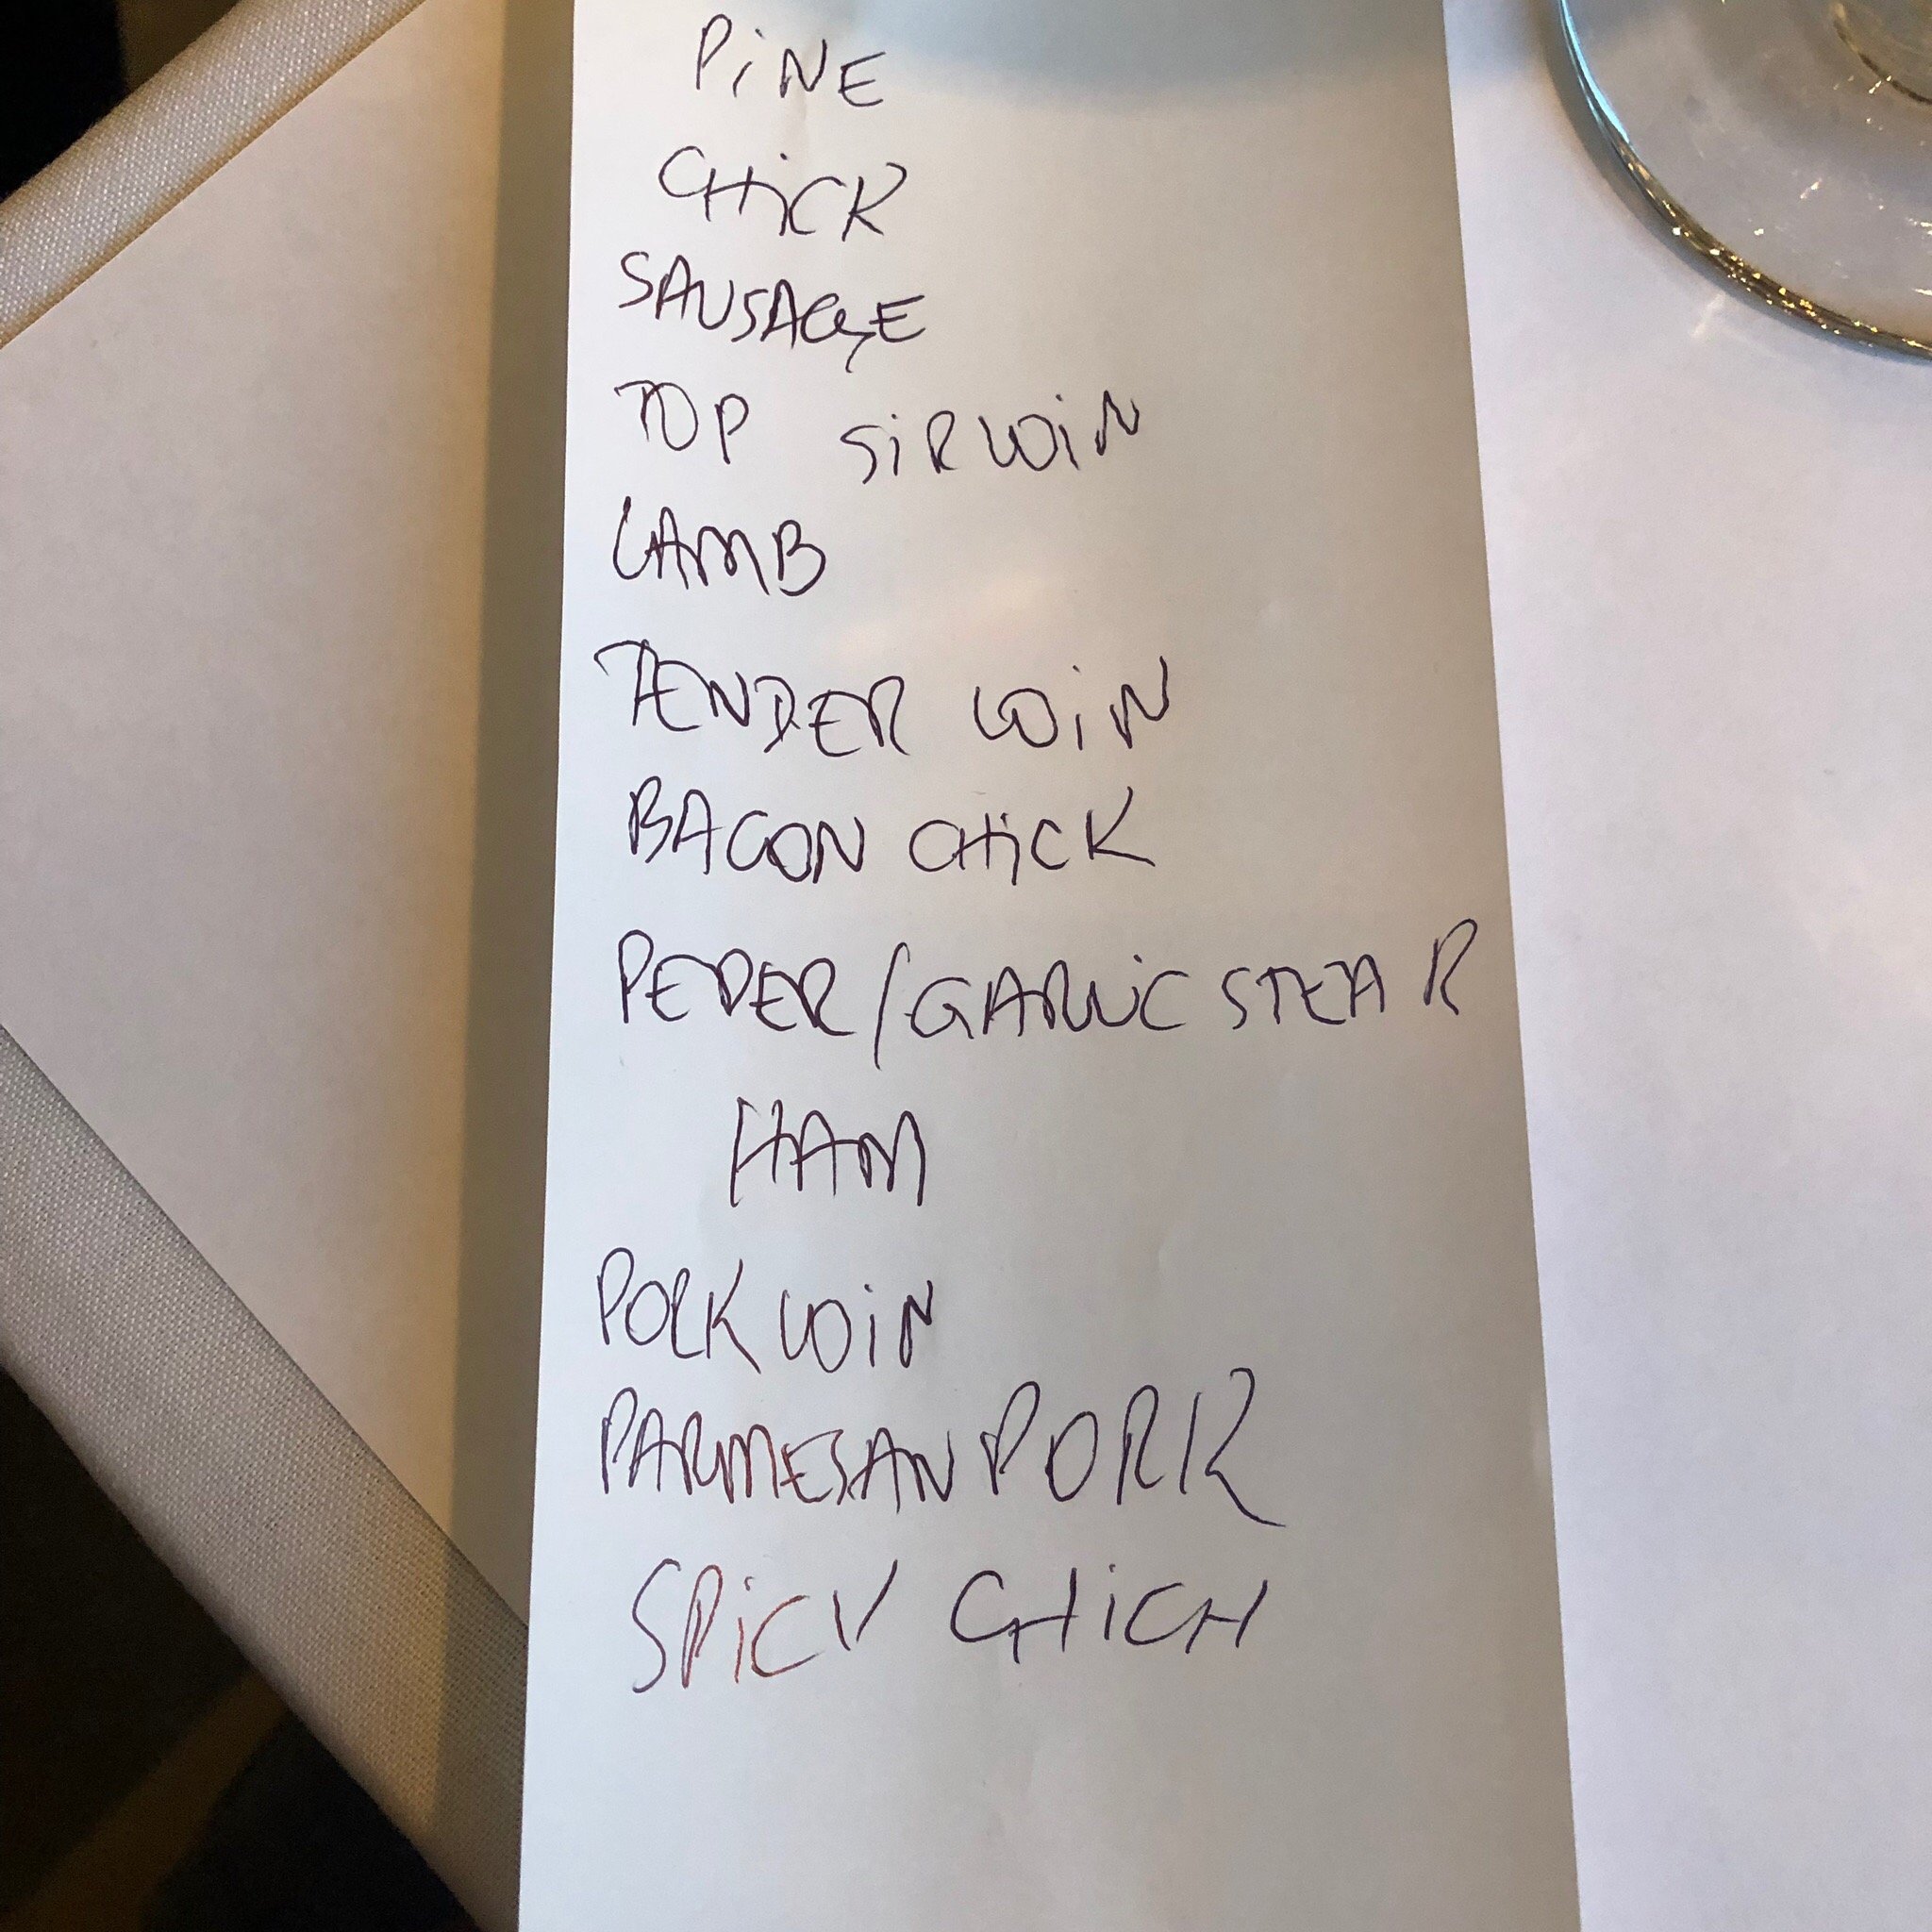 PiNE
CHiCK
SAUSAGE
TOP SiRLOiN
LAMB
TENDER LOiN
BACON CHiCK
PEPER/GARLiC STEAK
HAM
PORK LOiN
PARMESAN PORK
SPiCY CHiCK